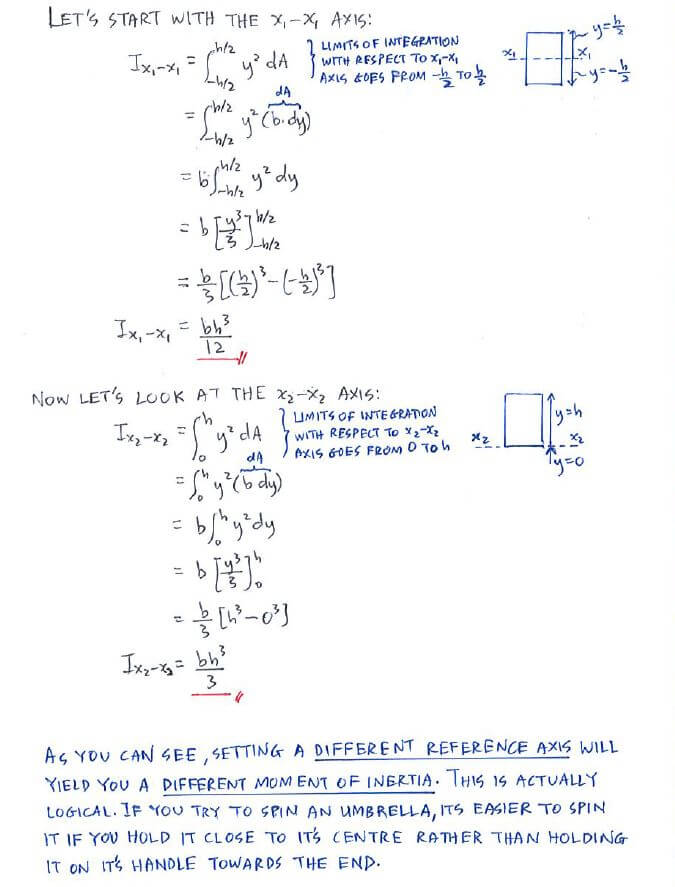 LET'S START WITH THE x₁-x₁ AXIS:
I_{x₁-x₁} = ∫_{-h/2}^{h/2} y² dA } LIMITS OF INTEGRATION
WITH RESPECT TO x₁-x₁
AXIS GOES FROM -h/2 TO h/2
x₁ x₁ y=h/2 y=-h/2
dA
= ∫_{-h/2}^{h/2} y² (b·dy)
= b∫_{-h/2}^{h/2} y² dy
= b[y³/3]_{-h/2}^{h/2}
= b/3 [(h/2)³-(-h/2)³]
I_{x₁-x₁} = bh³/12
NOW LET'S LOOK AT THE x₂-x₂ AXIS:
I_{x₂-x₂} = ∫_0^h y² dA } LIMITS OF INTEGRATION
WITH RESPECT TO x₂-x₂
AXIS GOES FROM 0 TO h
x₂ x₂ y=h y=0
dA
= ∫_0^h y²(b dy)
= b∫_0^h y²dy
= b [y³/3]_0^h
= b/3 [h³-0³]
I_{x₂-x₂} = bh³/3
AS YOU CAN SEE, SETTING A DIFFERENT REFERENCE AXIS WILL
YIELD YOU A DIFFERENT MOMENT OF INERTIA. THIS IS ACTUALLY
LOGICAL. IF YOU TRY TO SPIN AN UMBRELLA, ITS EASIER TO SPIN
IT IF YOU HOLD IT CLOSE TO IT'S CENTRE RATHER THAN HOLDING
IT ON IT'S HANDLE TOWARDS THE END.